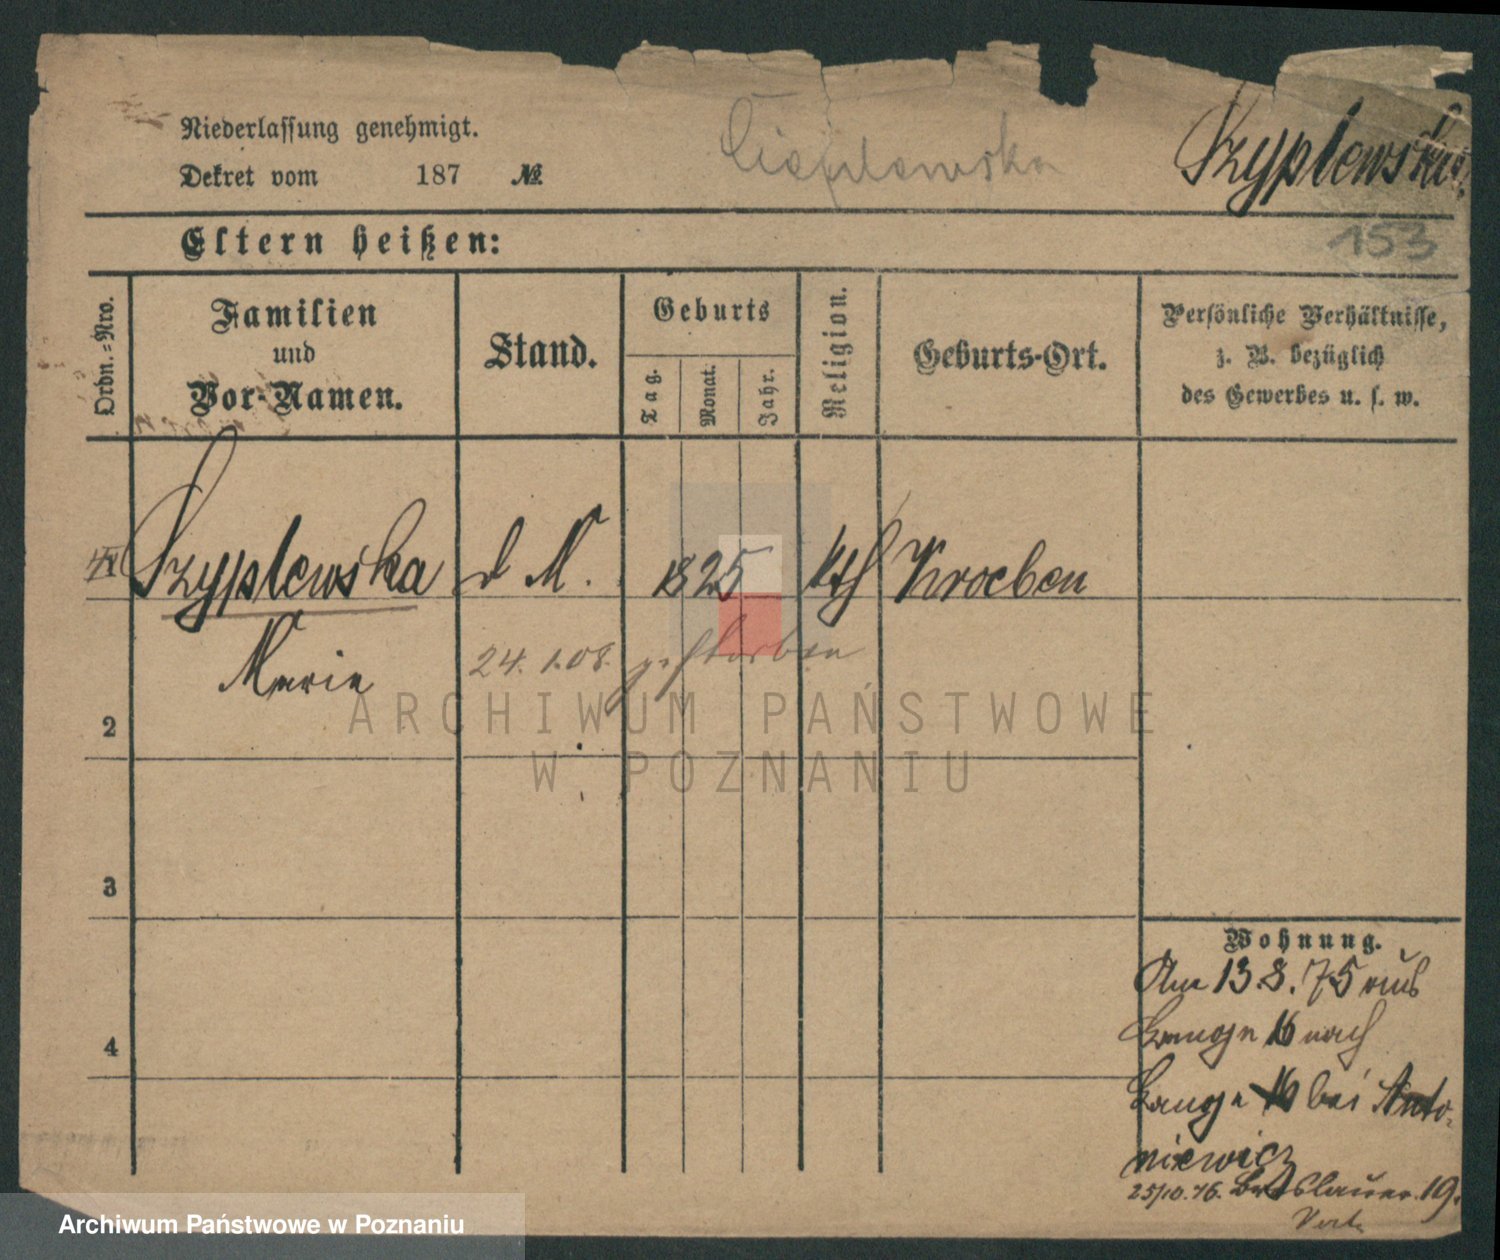 Niederlassung genehmigt.
Dekret vom 187 №
Szyplewska
153
Eltern heißen:
Ordn.=Nro.
Familien
und
Vor-Namen.
Stand.
Geburts
Tag.
Monat.
Jahr.
Religion.
Geburts-Ort.
Persönliche Verhältnisse,
z. B. bezüglich
des Gewerbes u. s. w.
Szyplewska d M. 1825 kth Kroeben
Marie 24.1.08. gestorben
2
3
4
Wohnung.
Am 13.8.75 aus
Lange 16 nach
Lange 16 bei Anto-
niewicz
25/10.76. Breslauer. 19.
ARCHIWUM PAŃSTWOWE
W POZNANIU
Archiwum Państwowe w Poznaniu